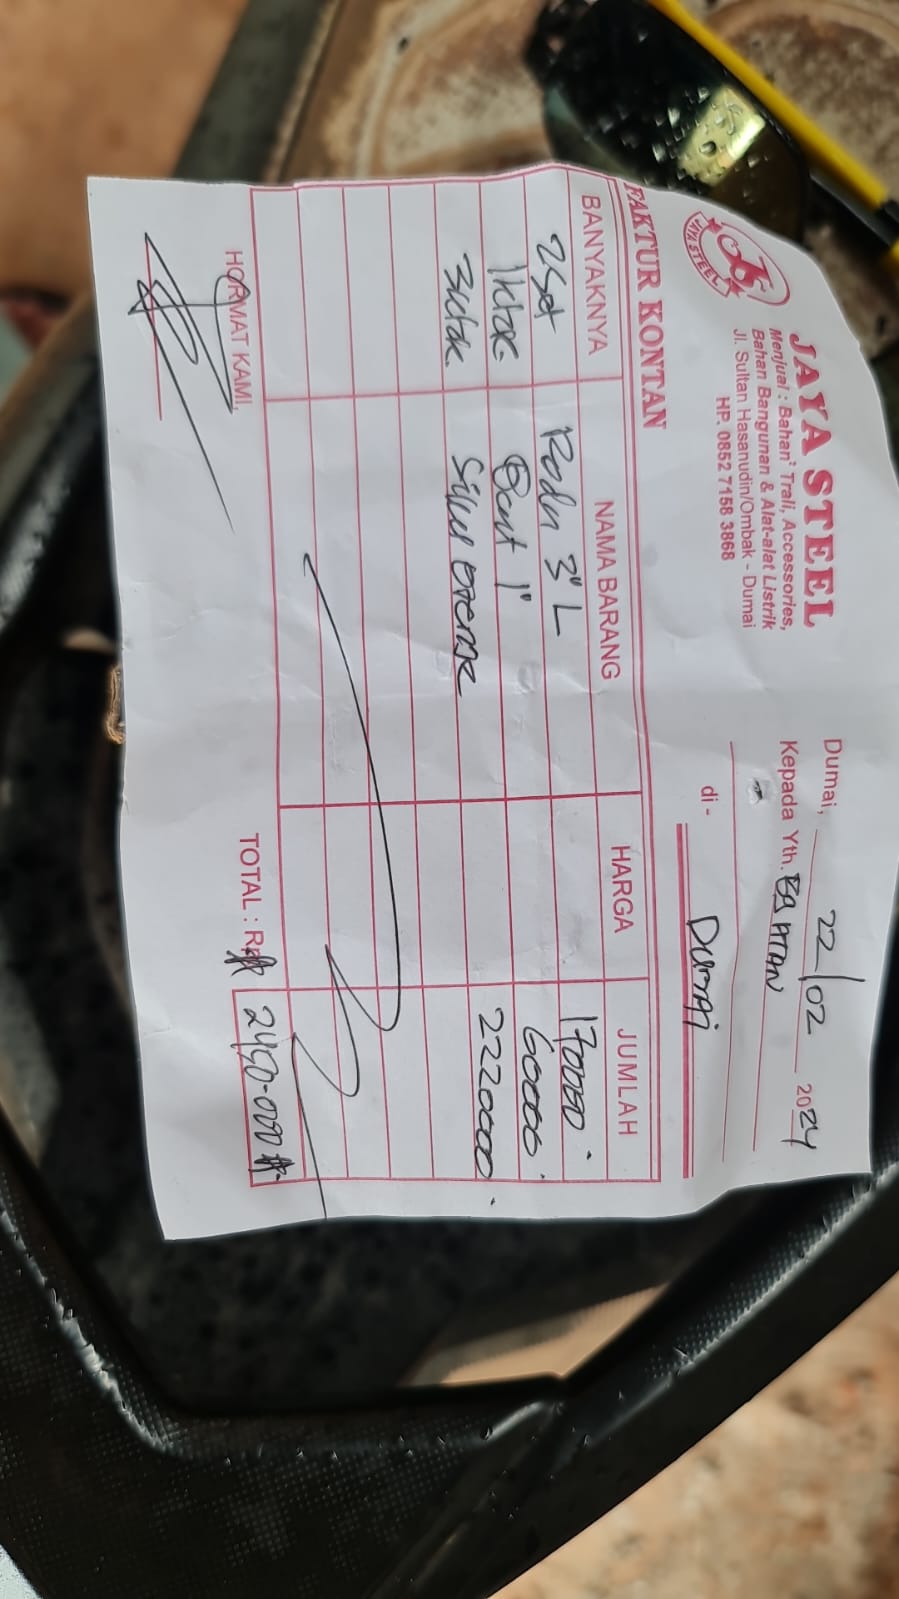 JAYA STEEL
Menjual : Bahan² Trali, Accessories,
Bahan Bangunan & Alat-alat Listrik
Jl. Sultan Hasanudin/Ombak - Dumai
HP. 0852 7158 3868
JAYA STEEL
Dumai, 22/02 2024
Kepada Yth.
di - Dumai
FAKTUR KONTAN
BANYAKNYA NAMA BARANG HARGA JUMLAH
2 Set Roda 3" L 170000
1 ktak 1" 60000
3 ktak 2220000
HORMAT KAMI,
TOTAL : Rp 2450.000